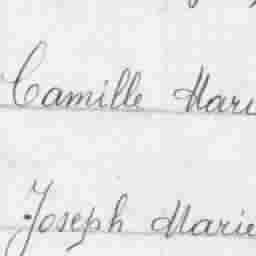 Camille Mari
Joseph Marie